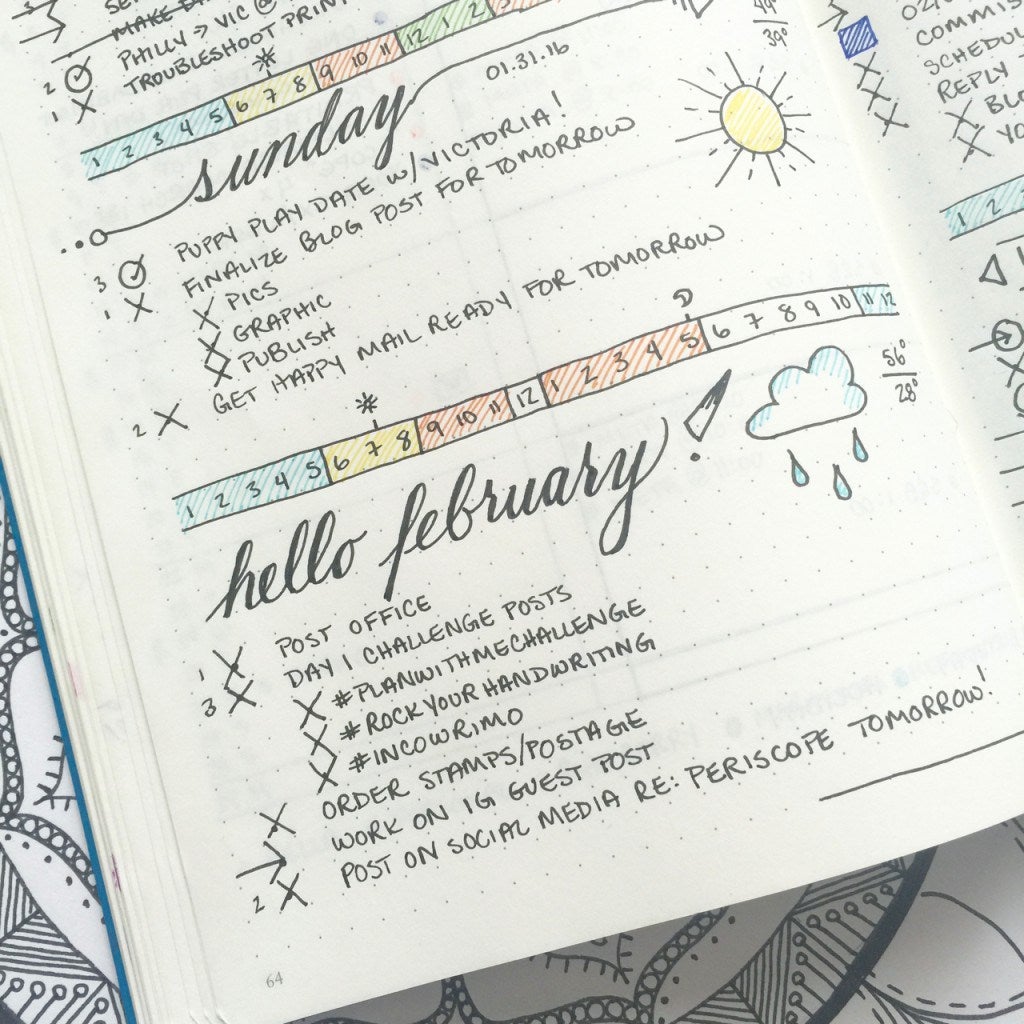 MAKE
2 PHILLY → VIC @
1 X TROUBLESHOOT PRINT
1 2 3 4 5 6 7 8 9 10 11 12 1 2
49° 39°
sunday
01.31.16
3 PUPPY PLAY DATE W/VICTORIA!
1 X FINALIZE BLOG POST FOR TOMORROW
X PICS
X GRAPHIC
X PUBLISH
2 X GET HAPPY MAIL READY FOR TOMORROW
1 2 3 4 5 6 7 8 9 10 11 12 1 2 3 4 5 6 7 8 9 10 11 12
56° 28°
hello february!
1 X POST OFFICE
3 X DAY 1 CHALLENGE POSTS
X #PLANWITHMECHALLENGE
X #ROCKYOURHANDWRITING
X #INCOWRIMO
X ORDER STAMPS/POSTAGE
→ WORK ON IG GUEST POST
2 X POST ON SOCIAL MEDIA RE: PERISCOPE TOMORROW!
64
COMMIS
SCHEDUL
REPLY
X BLO
X YO
1 2